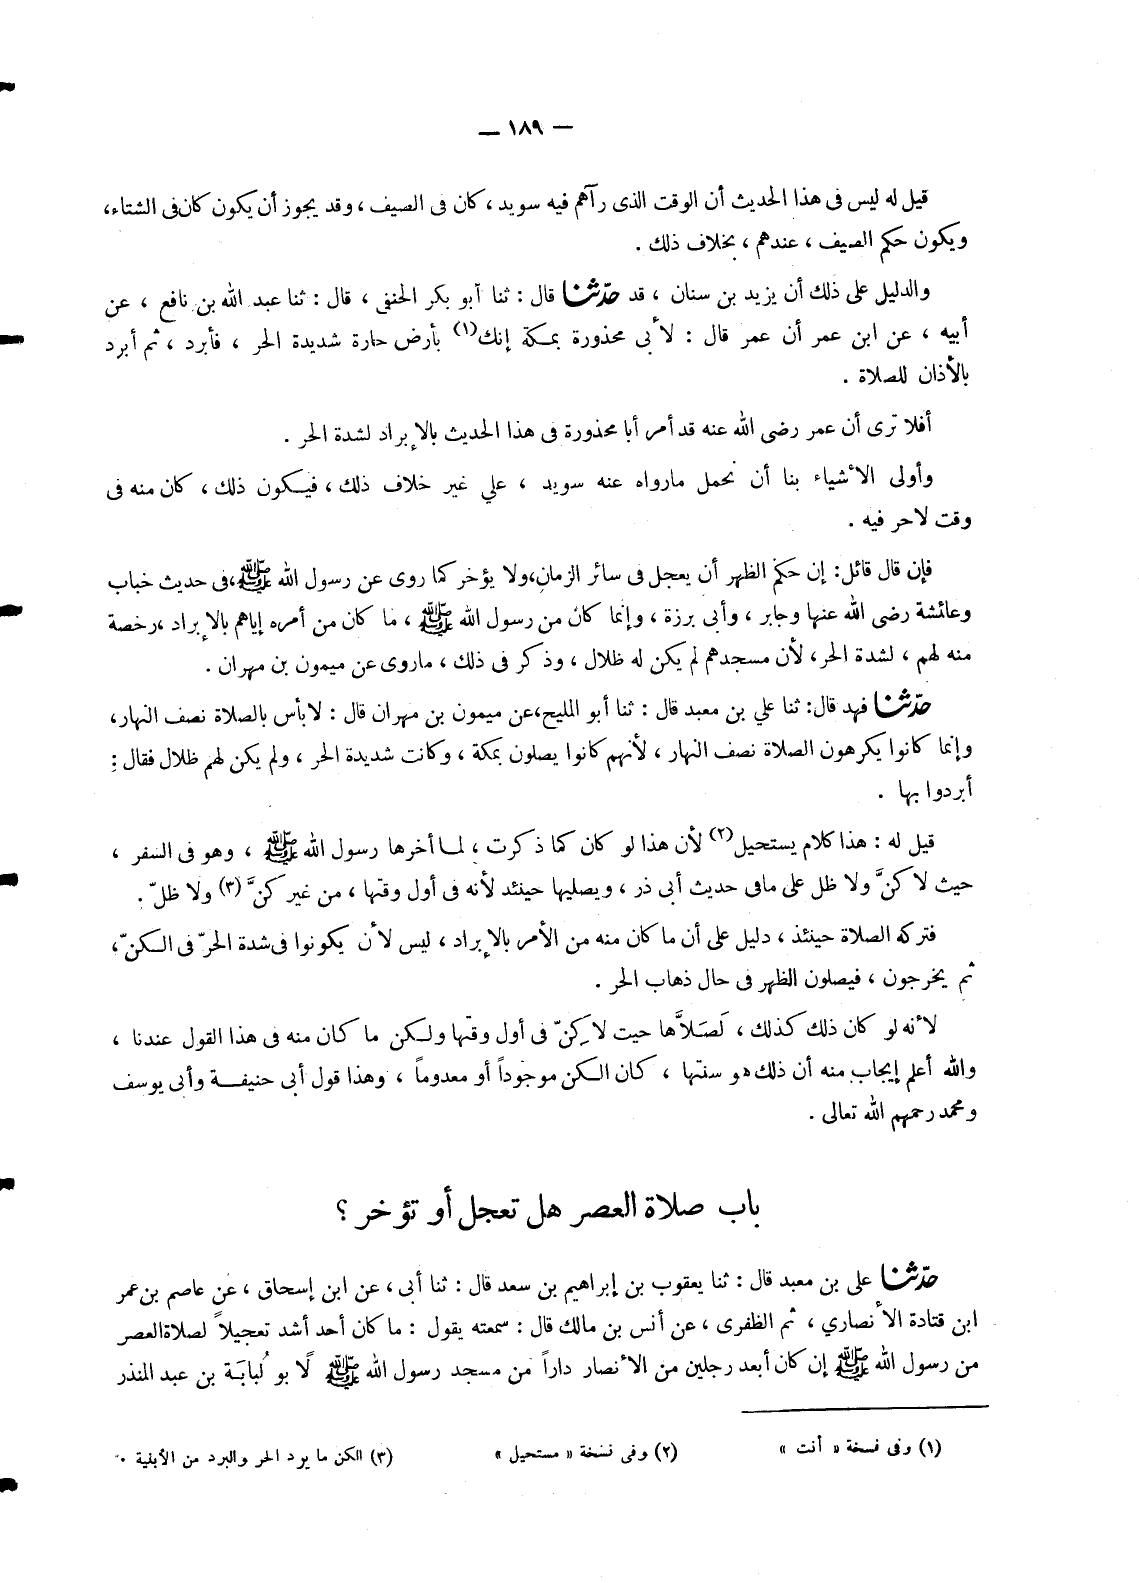 — ١٨٩ —
قيل له ليس فى هذا الحديث أن الوقت الذى رآهم فيه سويد ، كان فى الصيف ، وقد يجوز أن يكون كان فى الشتاء ،
ويكون حكم الصيف ، عندهم ، بخلاف ذلك .
والدليل على ذلك أن يزيد بن سنان ، قد حدّثنا قال : ثنا أبو بكر الحنفى ، قال : ثنا عبد الله بن نافع ، عن
أبيه ، عن ابن عمر أن عمر قال : لأبى محذورة بمكة إنك(١) بأرض حارة شديدة الحر ، فأبرد ، ثم أبرد
بالأذان للصلاة .
أفلا ترى أن عمر رضى الله عنه قد أمر أبا محذورة فى هذا الحديث بالإبراد لشدة الحر .
وأولى الأشياء بنا أن نحمل مارواه عنه سويد ، علي غير خلاف ذلك ، فيكون ذلك ، كان منه فى
وقت لاحر فيه .
فإن قال قائل : إن حكم الظهر أن يعجل فى سائر الزمان ، ولا يؤخر كما روى عن رسول الله ﷺ ، فى حديث خباب
وعائشة رضى الله عنها وجابر ، وأبى برزة ، وإنما كان من رسول الله ﷺ ، ما كان من أمره إياهم بالإبراد ، رخصة
منه لهم ، لشدة الحر ، لأن مسجدهم لم يكن له ظلال ، وذكر فى ذلك ، ماروى عن ميمون بن مهران .
حدّثنا فهد قال : ثنا علي بن معبد قال : ثنا أبو المليح ، عن ميمون بن مهران قال : لابأس بالصلاة نصف النهار ،
وإنما كانوا يكرهون الصلاة نصف النهار ، لأنهم كانوا يصلون بمكة ، وكانت شديدة الحر ، ولم يكن لهم ظلال فقال :
أبردوا بها .
قيل له : هذا كلام يستحيل(٢) لأن هذا لو كان كما ذكرت ، لما أخرها رسول الله ﷺ ، وهو فى السفر ،
حيث لا كنَّ ولا ظل على مافى حديث أبى ذر ، ويصليها حينئد لأنه فى أول وقتها ، من غير كنَّ (٣) ولا ظلّ .
فتركه الصلاة حينئذ ، دليل على أن ما كان منه من الأمر بالإبراد ، ليس لأن يكونوا فى شدة الحرّ فى الكنّ ،
ثم يخرجون ، فيصلون الظهر فى حال ذهاب الحر .
لأنه لو كان ذلك كذلك ، لَصَلاَّها حيت لا كِنّ فى أول وقتها ولكن ما كان منه فى هذا القول عندنا ،
والله أعلم إيجاب منه أن ذلك هو سنتها ، كان الكن موجوداً أو معدوماً ، وهذا قول أبى حنيفة وأبى يوسف
ومحمد رحمهم الله تعالى .
باب صلاة العصر هل تعجل أو تؤخر ؟
حدّثنا على بن معبد قال : ثنا يعقوب بن إبراهيم بن سعد قال : ثنا أبى ، عن ابن إسحاق ، عن عاصم بن عمر
ابن قتادة الأنصاري ، ثم الظفرى ، عن أنس بن مالك قال : سمعته يقول : ما كان أحد أشد تعجيلاً لصلاة العصر
من رسول الله ﷺ إن كان أبعد رجلين من الأنصار داراً من مسجد رسول الله ﷺ لأبو لُبابَة بن عبد المنذر
(١) وفى نسخة « أنت » (٢) وفى نسخة « مستحيل » (٣) الكن ما يرد الحر والبرد من الأبنية .